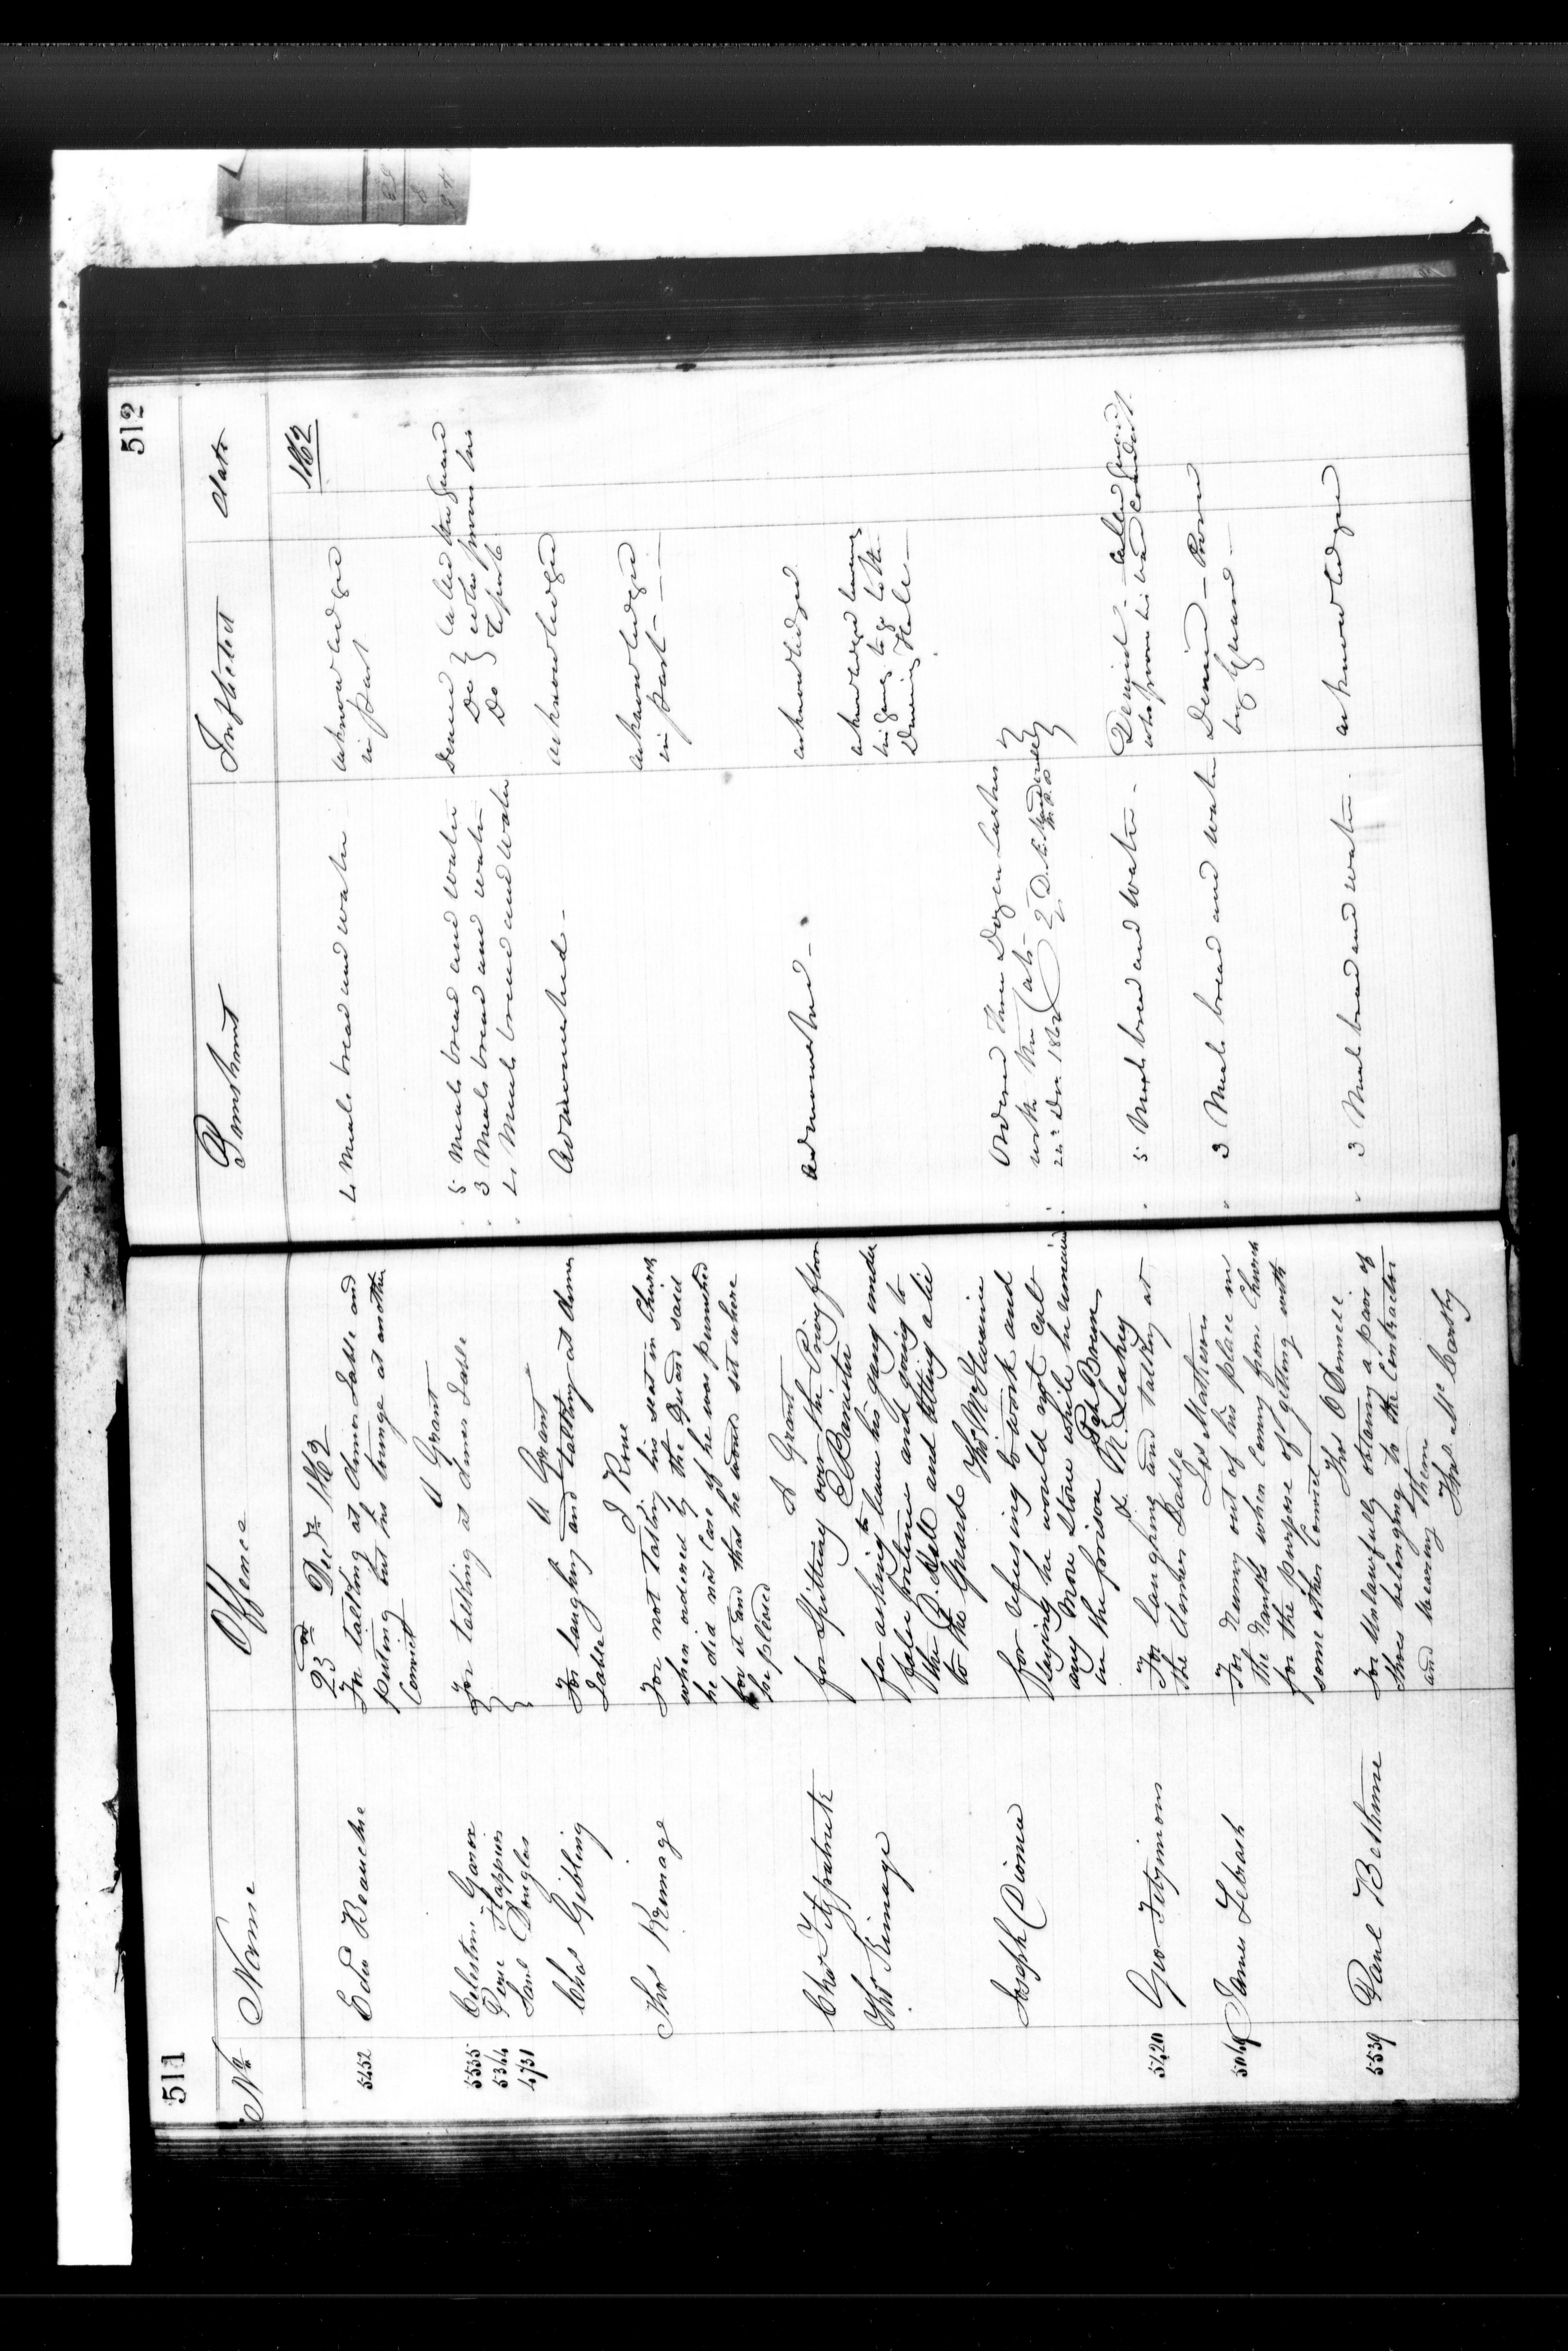 511
No Name Offence
23rd Decr 1862
5452 Edwd Beauche For talking at dinner table and
putting out his tounge at another
Convict
A Grant
5535 Celestin Garior For talking at dinner table
5344 Pierre Happier
4731 Saul Douglas
A Grant
Chas Gibling For laughing and talking at dinner
table
J Kone
Thos Kremage For not taking his seat in Church
when ordered by the Guard said
he did not care if he was punished
for it and that he would sit where
he pleased
A Grant
Chas Fitzpatrick for Spitting over the Privy floor
Barrister
Thos Kimage for asking to leave his gang under
false pretence and going to
the D. Cell and telling a lie
to the Guard Thos McIlwaine
Joseph Dionne for refusing to work and
saying he would not cut
any more stone while he remained
in the prison Pat Brown
& M. Leahy
5420 Geo Fitzgimons For laughing and talking at
the dinner table
Jas Matheson
James Lebrash For running out of his place in
the Ranks when coming from Church
for the purpose of getting with
some other Convict
Thos O Donnell
5539 Paul Bethune For Unlawfully obtaining a pair of
Shoes belonging to the Contractor
and wearing them
Thos McCarthy
512
Punishment Inflicted date
1862
4 Meals bread and water acknowledged
in part
5 Meals bread and water Denied Called the Guard
3 Meals bread and water Do who proves his
4 Meals bread and water Do report
Admonished - acknowledged
acknowledged
in part -
admonished - acknowledged
acknowledged leaving
his gang to go to the
Dining Hall -
Ordered Three Dozen Lashes
with the Cats -
24th Dec 1862
5 Meals bread and water - Denied - Called Guard
who proves his bad conduct
3 Meals bread and water Denied - Proved
by Guard -
3 Meals bread and water - acknowledged